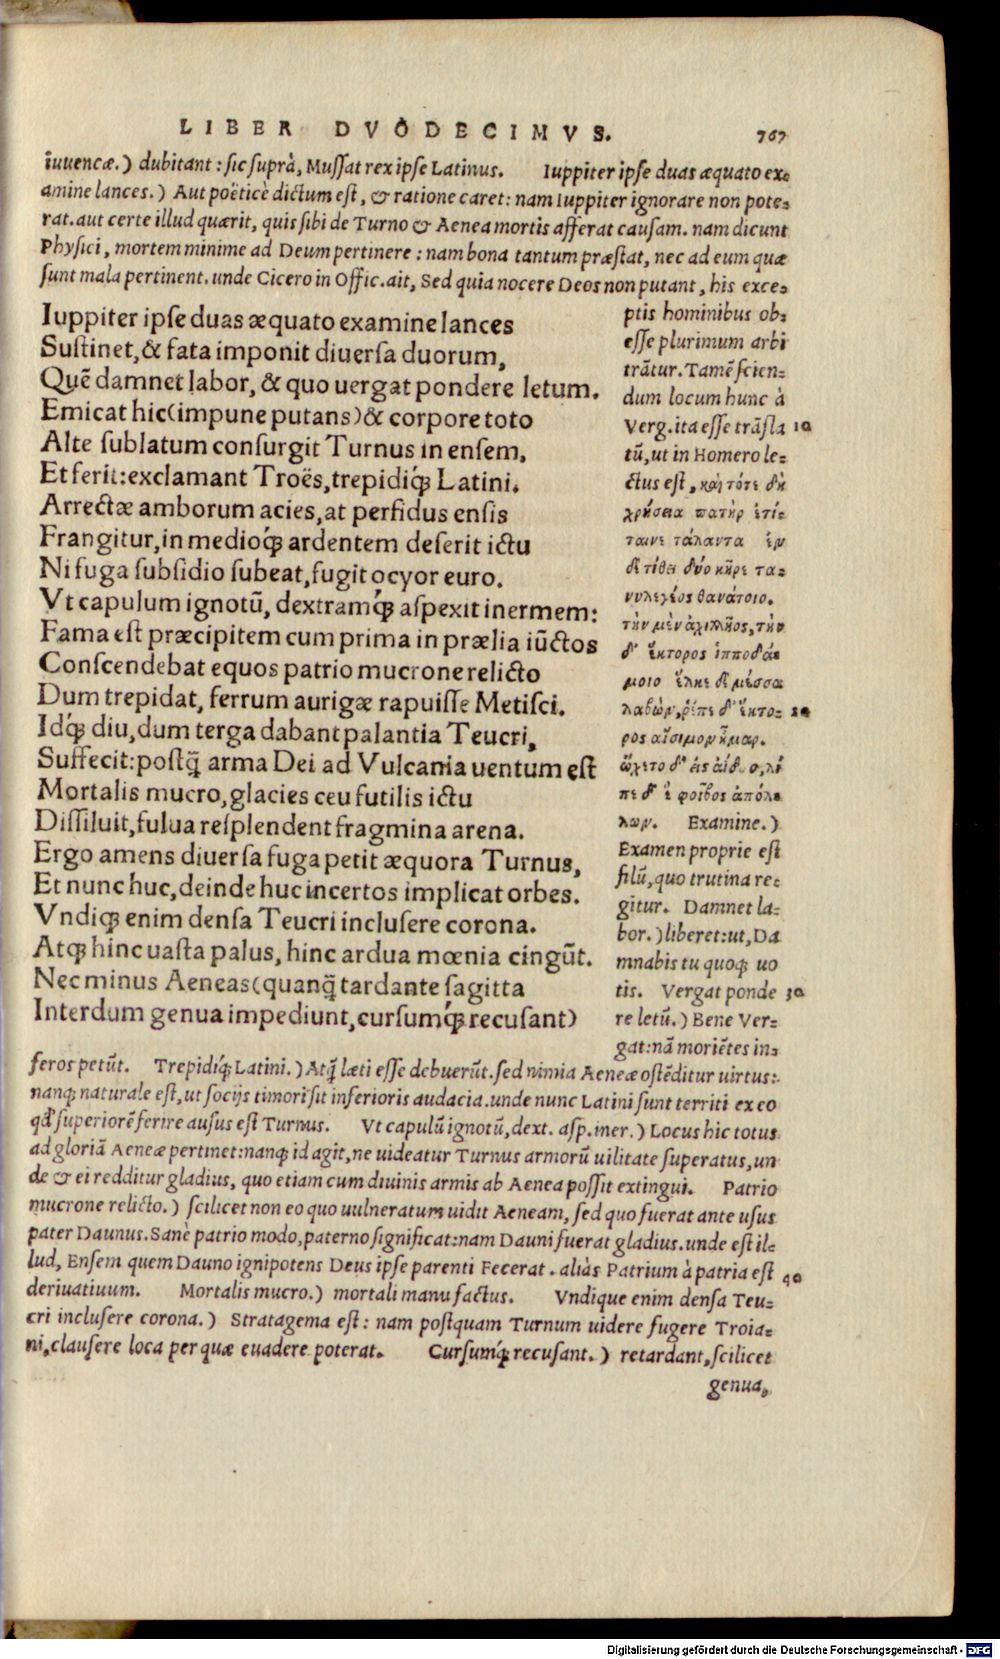 LIBER DVODECIMVS. 767
iuuencæ.) dubitant: sic suprà, Mussat rex ipse Latinus. Iuppiter ipse duas æquato ex-
amine lances.) Aut poëticè dictum est, & ratione caret: nam Iuppiter ignorare non pote-
rat. aut certe illud quærit, quis sibi de Turno & Aenea mortis afferat causam. nam dicunt
Physici, mortem minime ad Deum pertinere: nam bona tantum præstat, nec ad eum quæ
sunt mala pertinent. unde Cicero in Offic. ait, Sed quia nocere Deos non putant, his exce-
Iuppiter ipse duas æquato examine lances
Sustinet, & fata imponit diuersa duorum,
Quē damnet labor, & quo uergat pondere letum.
Emicat hic (impune putans) & corpore toto
Alte sublatum consurgit Turnus in ensem,
Et ferit: exclamant Troës, trepidiq́; Latini.
Arrectæ amborum acies, at perfidus ensis
Frangitur, in medioq́; ardentem deserit ictu
Ni fuga subsidio subeat, fugit ocyor euro.
Vt capulum ignotū, dextramq́; aspexit inermem:
Fama est præcipitem cum prima in prælia iūctos
Conscendebat equos patrio mucrone relicto
Dum trepidat, ferrum aurigæ rapuisse Metisci.
Idq́; diu, dum terga dabant palantia Teucri,
Suffecit: postq̃ arma Dei ad Vulcania uentum est
Mortalis mucro, glacies ceu futilis ictu
Dissiluit, fulua resplendent fragmina arena.
Ergo amens diuersa fuga petit æquora Turnus,
Et nunc huc, deinde huc incertos implicat orbes.
Vndiq; enim densa Teucri inclusere corona.
Atq; hinc uasta palus, hinc ardua mœnia cingūt.
Nec minus Aeneas (quanq̃ tardante sagitta
Interdum genua impediunt, cursumq́; recusant)
ptis hominibus ob-
esse plurimum arbi
trātur. Tamē scien-
dum locum hunc à
Verg. ita esse trāsla 10
tū, ut in Homero le-
ctus est, καὶ τότε δὴ
χρύσεια πατὴρ ἐτί-
ταινε τάλαντα ἐν
δὲ τίθει δύο κῆρε τα-
νυλεγέος θανάτοιο.
τὴν μὲν ἀχιλλῆος, τὴν
δ' ἕκτορος ἱπποδά-
μοιο ἕλκε δὲ μέσσα
λαβὼν, ῥέπε δ' ἕκτο- 20
ρος αἴσιμον ἦμαρ.
ᾤχετο δ' εἰς ἀΐδαο, λί
πε δ' ἑ φοῖβος ἀπόλ-
λων. Examine.)
Examen proprie est
filū, quo trutina re-
gitur. Damnet la-
bor.) liberet: ut, Da
mnabis tu quoq; uo
tis. Vergat ponde 30
re letū.) Bene Ver-
gat: nā moriētes in-
feros petūt. Trepidiq́; Latini.) Atq́; læti esse debuerūt. sed nimia Aeneæ ostēditur uirtus:
nanq; naturale est, ut socijs timori sit inferioris audacia. unde nunc Latini sunt territi ex eo
qd' superiorē ferire ausus est Turnus. Vt capulū ignotū, dext. asp. iner.) Locus hic totus
ad gloriā Aeneæ pertinet: nanq; id agit, ne uideatur Turnus armorū uilitate superatus, un
de & ei redditur gladius, quo etiam cum diuinis armis ab Aenea possit extingui. Patrio
mucrone relicto.) scilicet non eo quo uulneratum uidit Aeneam, sed quo fuerat ante usus
pater Daunus. Sanè patrio modo, paterno significat: nam Dauni fuerat gladius. unde est il-
lud, Ensem quem Dauno ignipotens Deus ipse parenti Fecerat. aliàs Patrium à patria est 40
deriuatiuum. Mortalis mucro.) mortali manu factus. Vndique enim densa Teu-
cri inclusere corona.) Stratagema est: nam postquam Turnum uidere fugere Troia-
ni, clausere loca per quæ euadere poterat. Cursumq́; recusant.) retardant, scilicet
genua,
Digitalisierung gefördert durch die Deutsche Forschungsgemeinschaft - DFG